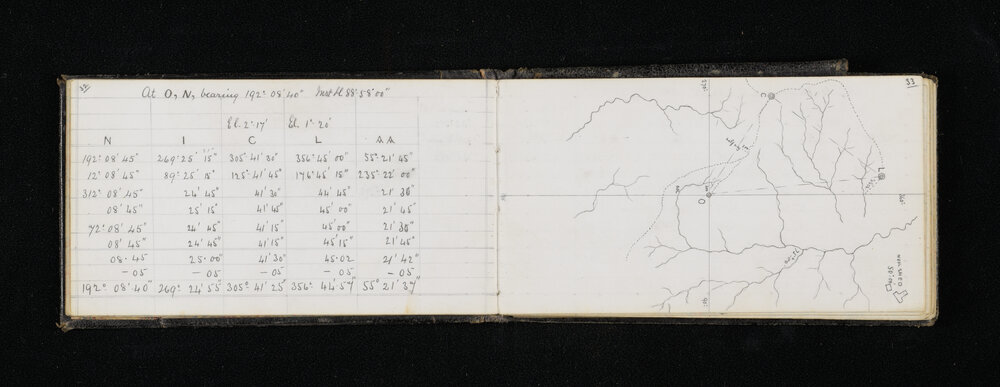 At O, N, bearing 192° 08' 40" Inst Al 88° 58' 00"
El. 2° 17' El. 1° 20'
N I C L AA
192° 08' 45" 269° 25' 15" 305° 41' 30" 356° 45' 00" 55° 21' 45"
12° 08' 45" 89° 25' 15" 125° 41' 45" 176° 45' 15" 235° 22' 00"
312° 08' 45" 24' 45" 41' 30" 44' 45" 21' 30"
08' 45" 25' 15" 41' 45" 45' 00" 21' 45"
72° 08' 45" 24' 45" 41' 15" 45' 00" 21' 30"
08' 45" 24' 45" 41' 15" 45' 15" 21' 45"
08. 45 25. 00" 41' 30" 45. 02 21' 42"
- 05 - 05 - 05 - 05 - 05
192° 08' 40" 269° 24' 55" 305° 41' 25" 356° 44' 57" 55° 21' 37"
33
C
L
O